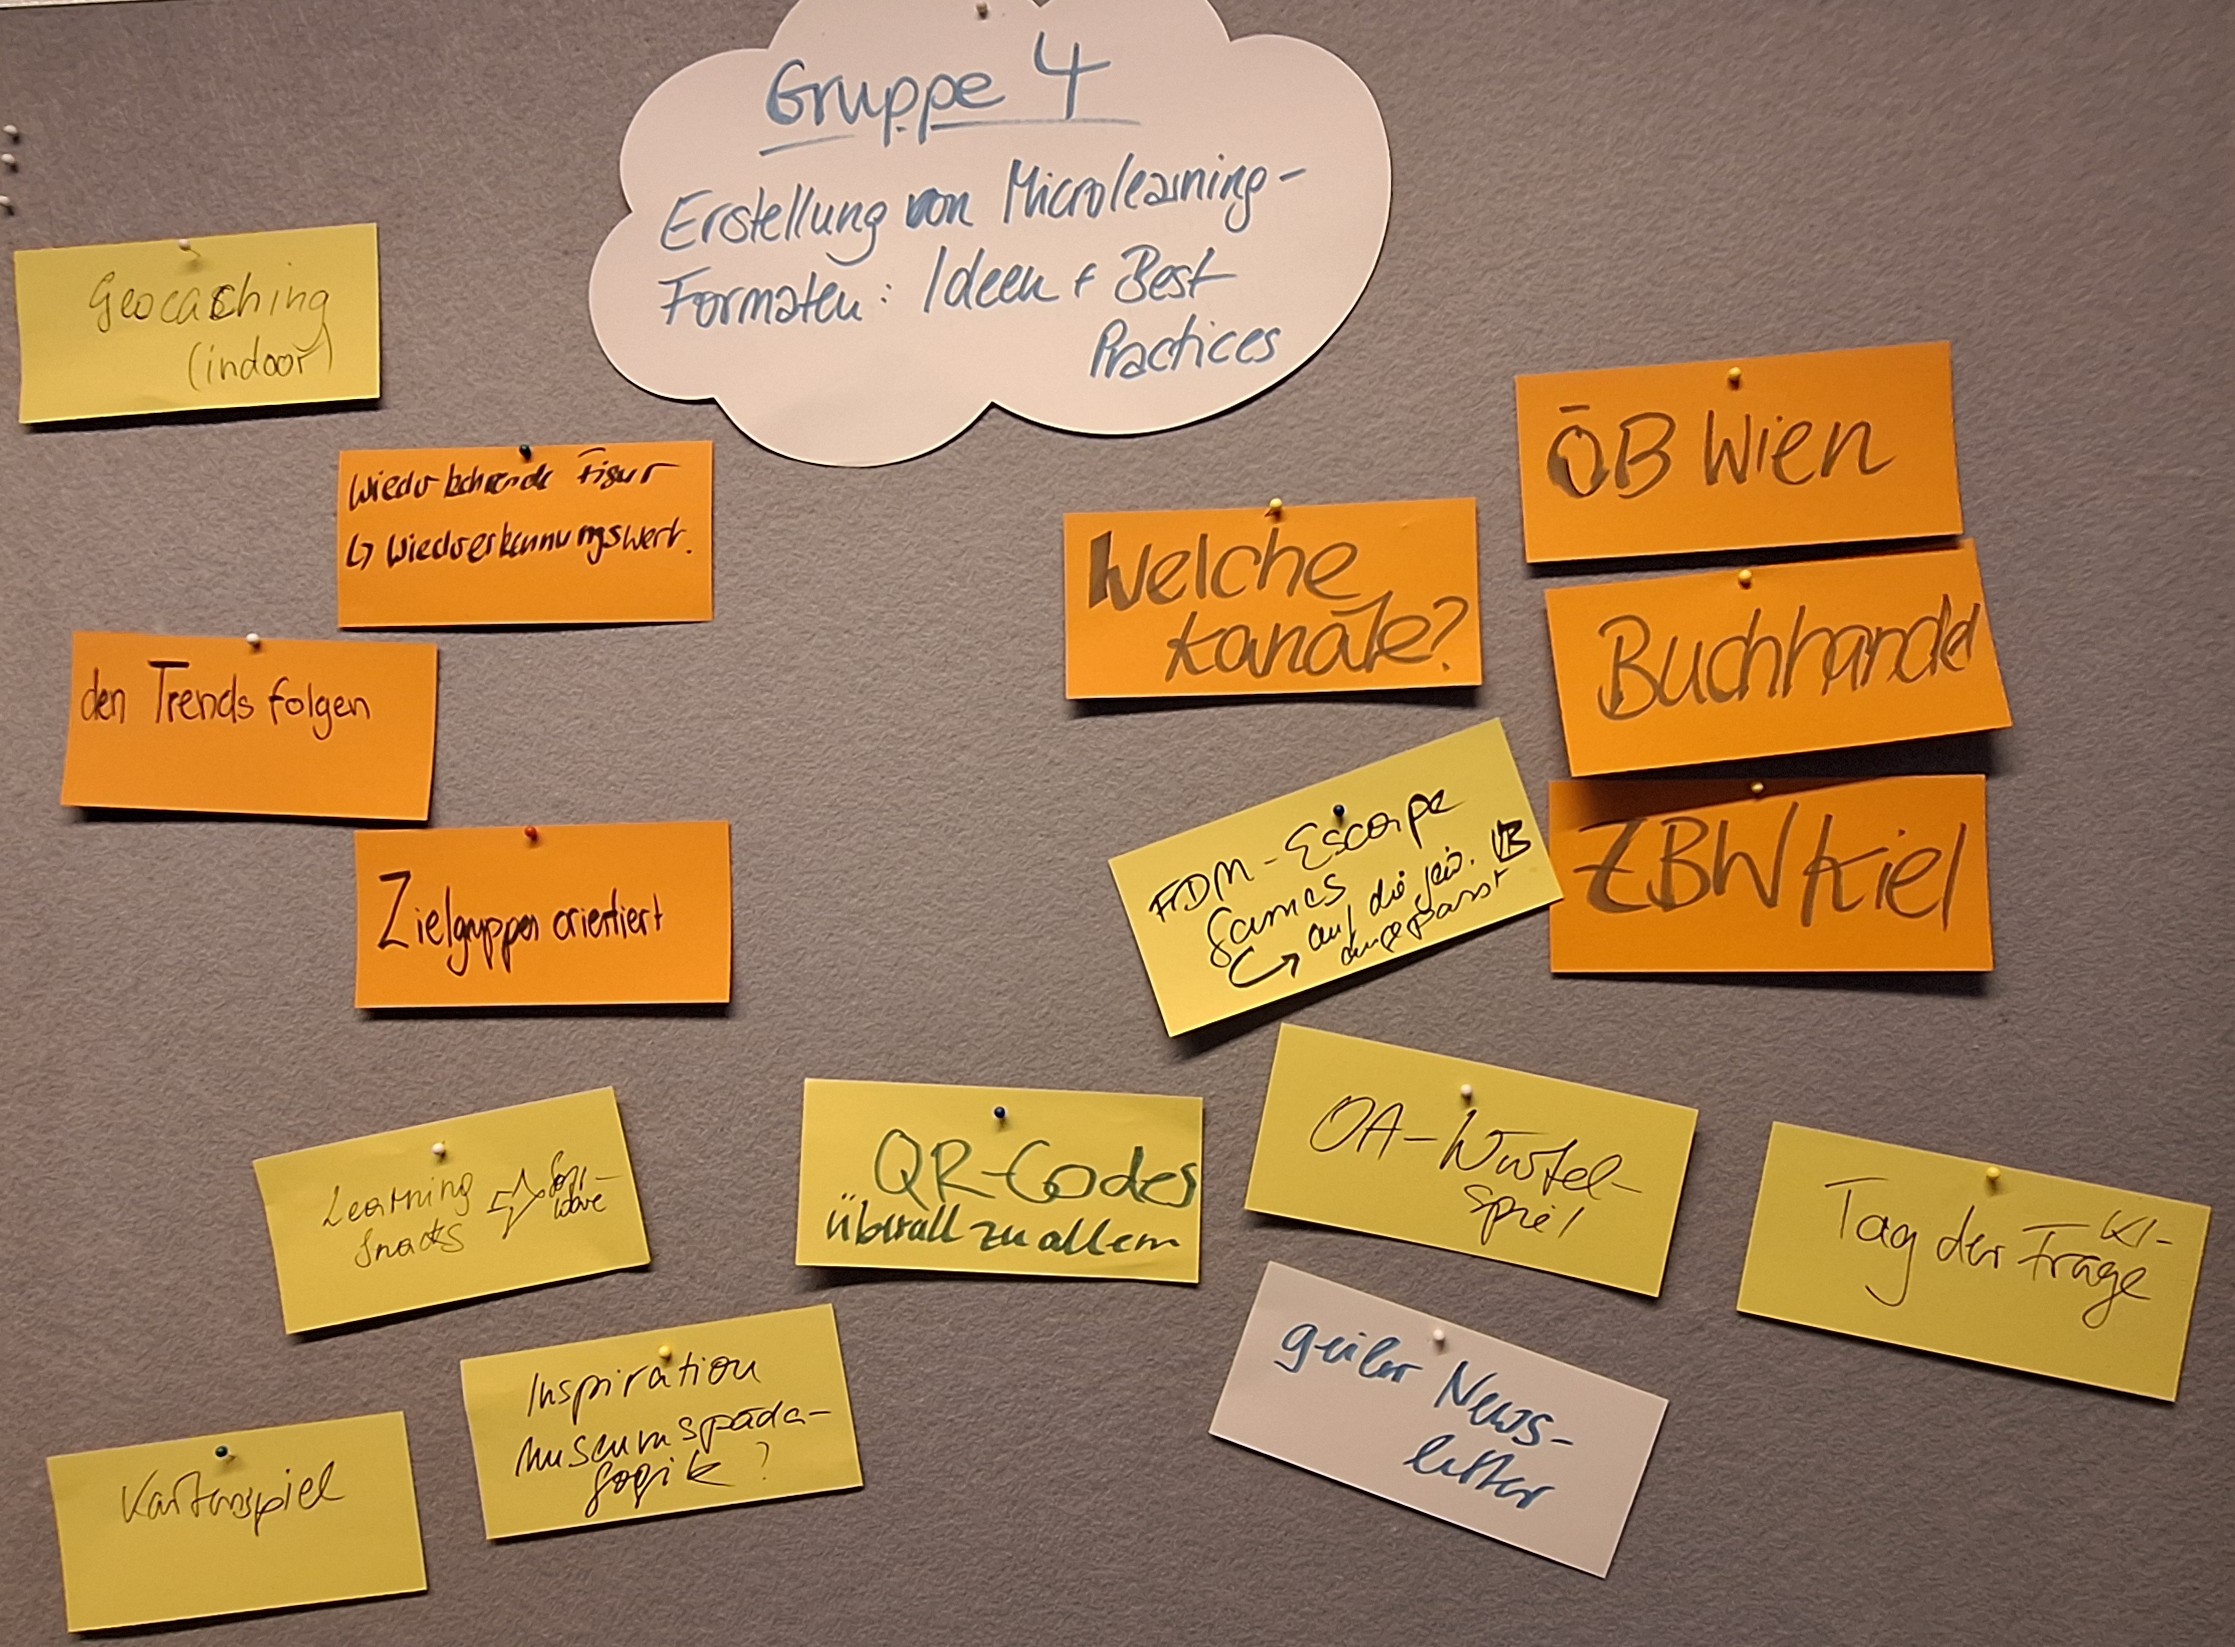 Gruppe 4
Erstellung von Microlearning-
Formaten: Ideen + Best
Practices
Geocaching
(indoor)
Wiederkehrende Figur
↳ Wiedererkennungswert.
den Trends folgen
Zielgruppen orientiert
Welche
Kanäle?
ÖB Wien
Buchhandel
ZBW Kiel
FDM-Escape
Games
↪ auf die jew. UB
angepasst
Learning
Snacks
Soft-
ware
QR-Codes
überall zu allem
OA-Würfel-
spiel
KI-
Tag der Frage
geiler News-
letter
Inspiration
Museumspäda-
gogik?
Kartenspiel